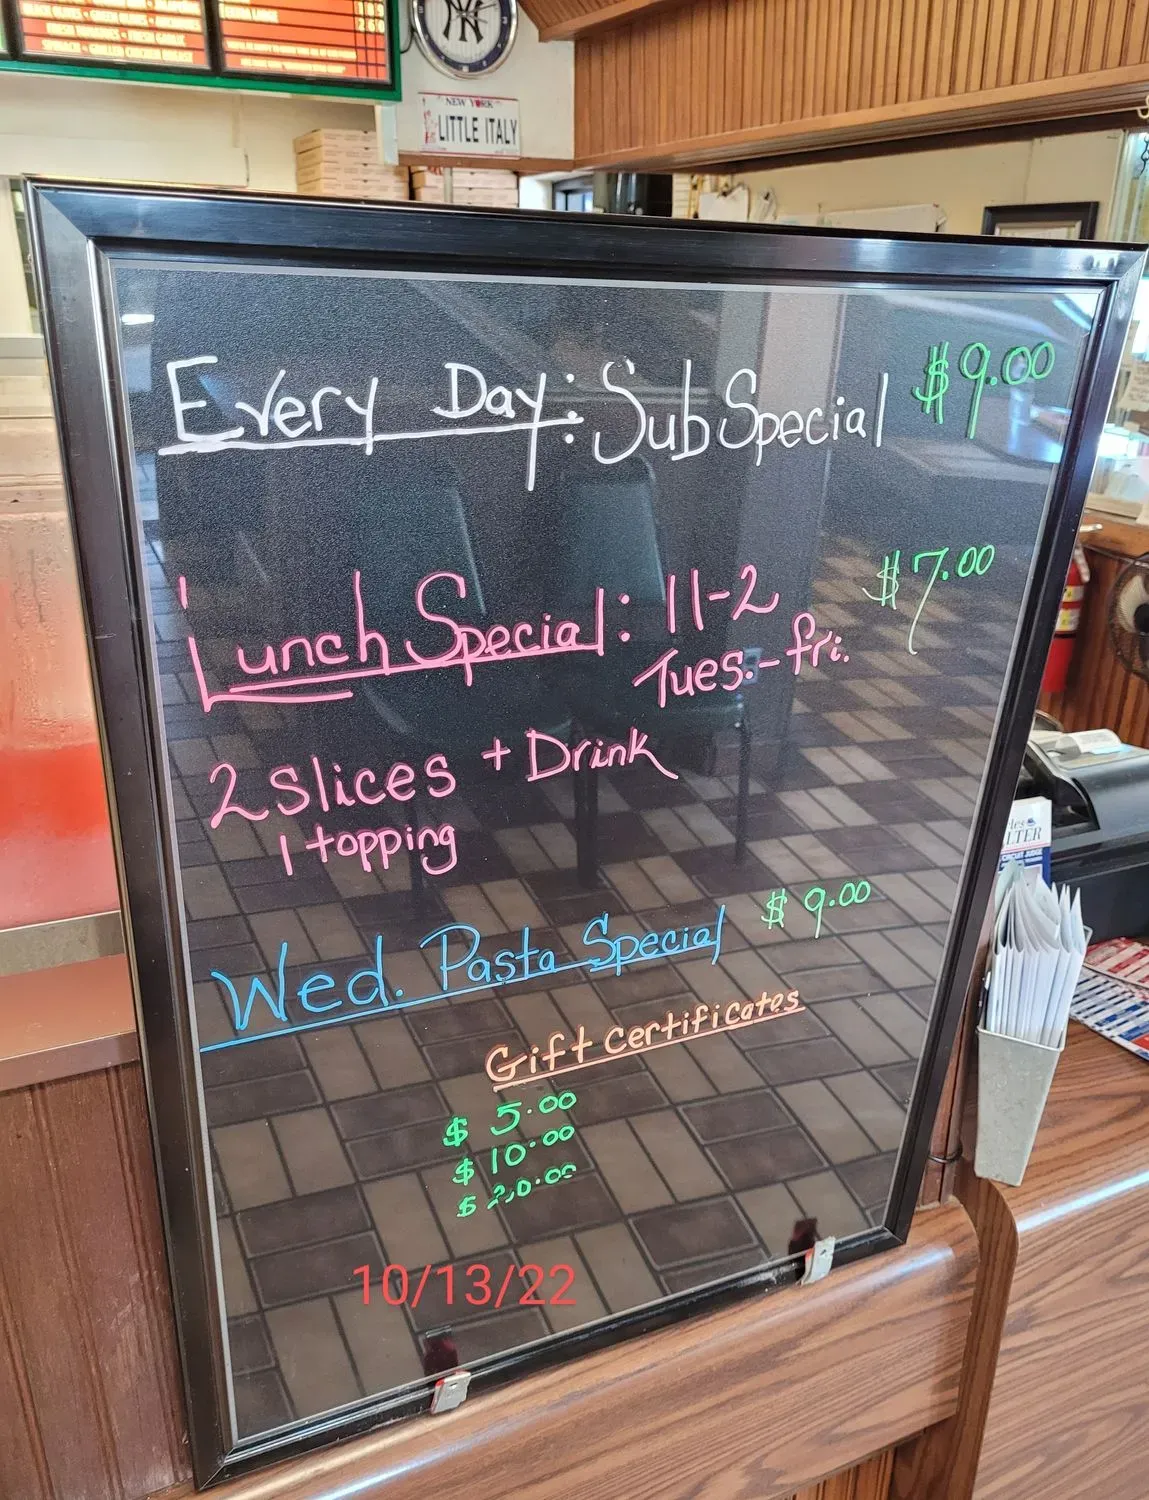 NEW YORK
LITTLE ITALY
Every Day: Sub Special $9.00
Lunch Special: 11-2 $7.00
Tues.-fri.
2 slices + Drink
1 topping
Wed. Pasta Special $9.00
Gift certificates
$5.00
$10.00
$20.00
10/13/22